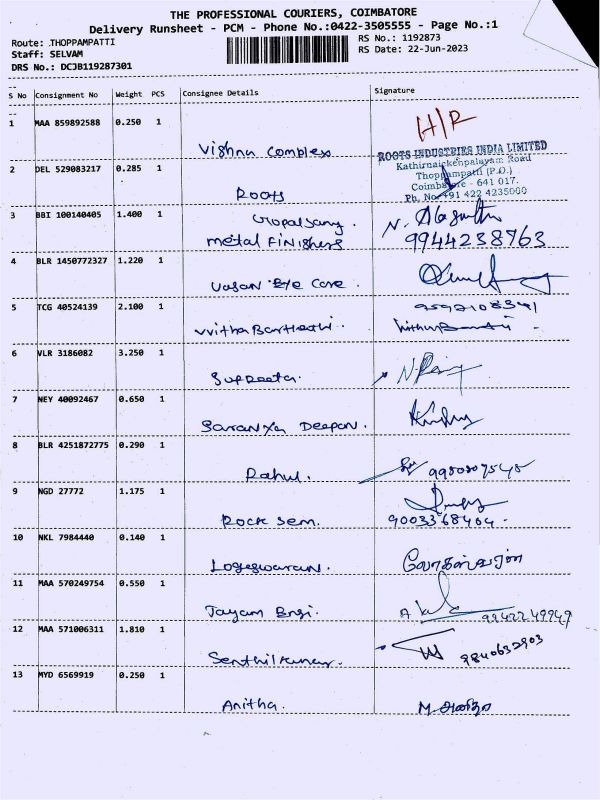 THE PROFESSIONAL COURIERS, COIMBATORE
Delivery Runsheet - PCM - Phone No.:0422-3505555 - Page No.:1
Route: .THOPPAMPATTI
RS No.: 1192873
Staff: SELVAM
RS Date: 22-Jun-2023
DRS No.: DCJB119287301
S No Consignment No Weight PCS Consignee Details Signature
1 MAA 859892588 0.250 1
H/R
Vishnu Complex
ROOTS INDUSTRIES INDIA LIMITED
Kathirnaickenpalayam Road
2 DEL 529083217 0.285 1
Thoppampatti (P.O.)
Coimbatore - 641 017.
Roots
Ph. No +91 422 4235000
3 BBI 100140405 1.400 1
N.
Metal Finishers
9944238763
4 BLR 1450772327 1.220 1
Vasan Eye Care .
5 TCG 40524139 2.100 1
6 VLR 3186082 3.250 1
Supreeta.
7 NEY 40092467 0.650 1
Saranya Deepan.
8 BLR 4251872775 0.290 1
Rahul.
9 NGD 27772 1.175 1
Rock Sem.
9003368404.
10 NKL 7984440 0.140 1
Logeswaran.
லோகேஸ்வரன்
11 MAA 570249754 0.550 1
Jayam Engi.
9942249949
12 MAA 571006311 1.810 1
9840632903
Senthilkumar.
13 MYD 6569919 0.250 1
Anitha.
M. அனிதா